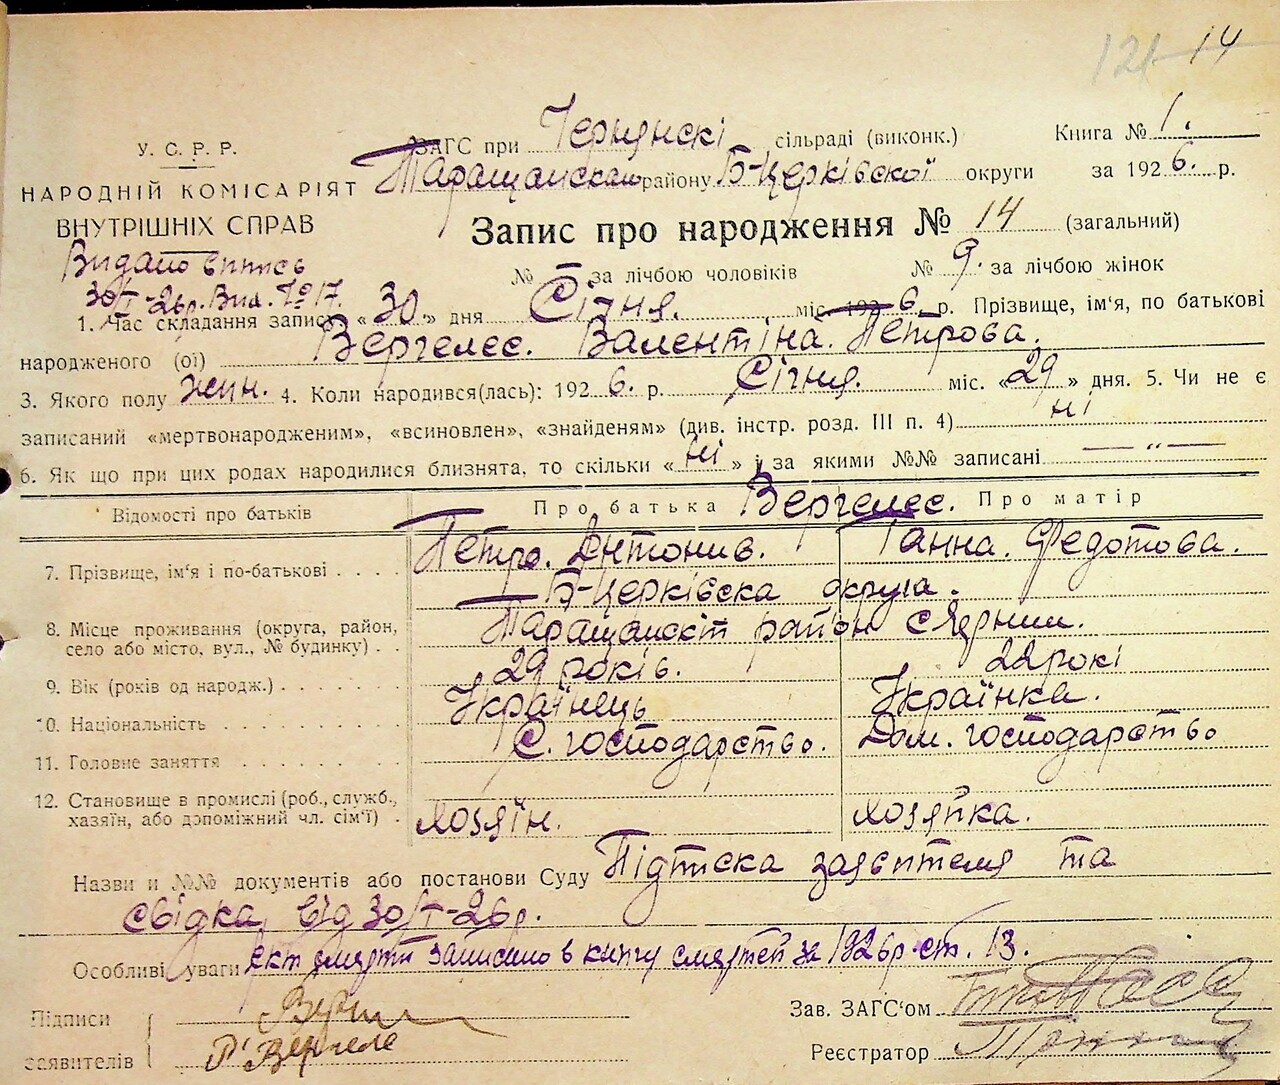 121 14
У. С. Р. Р.
НАРОДНІЙ КОМІСАРІЯТ
ВНУТРІШНІХ СПРАВ
ЗАГС при Чернинскі сільраді (виконк.) Книга № 1.
Таращанском району Б-Церківської округи за 1926. р.
Запис про народження № 14 (загальний)
Видано випись
30/I-26р. Вид. № 17.
№ — за лічбою чоловіків № 9. за лічбою жінок
1. Час складання запису «30» дня Січня. міс. 1926 р. Прізвище, ім'я, по батькові
народженого (ої) Вергелес. Валентіна. Петрова.
3. Якого полу жин. 4. Коли народився(лась): 1926. р. Січня. міс. «29» дня. 5. Чи не є
записаний «мертвонародженим», «всиновлен», «знайденям» (див. інстр. розд. III п. 4) ні
6. Як що при цих родах народилися близнята, то скільки «ні» і за якими №№ записані — „ —
Відомості про батьків Про батька Вергелес. Про матір
7. Прізвище, ім'я і по-батькові Петро. Антонив. Ганна. Федотова.
Б-Церківска округа.
8. Місце проживання (округа, район, село або місто, вул., № будинку) Таращанскіт район с
9. Вік (років од народж.) 29 років. 22 рокі
10. Національність Українець Українка.
11. Головне заняття С. господарство. Дом. господарство
12. Становище в промислі (роб., служб.,
хазяїн, або допоміжний чл. сім'ї) хозяїн. хозяйка.
Назви и №№ документів або постанови Суду Підписка заявителя та
свідка, від 30/I-26р.
Особливі уваги Акт смерти записано в книгу смертей за 1926р ст. 13.
Підписи
заявителів Вергеле
Зав. ЗАГС'ом
Реєстратор